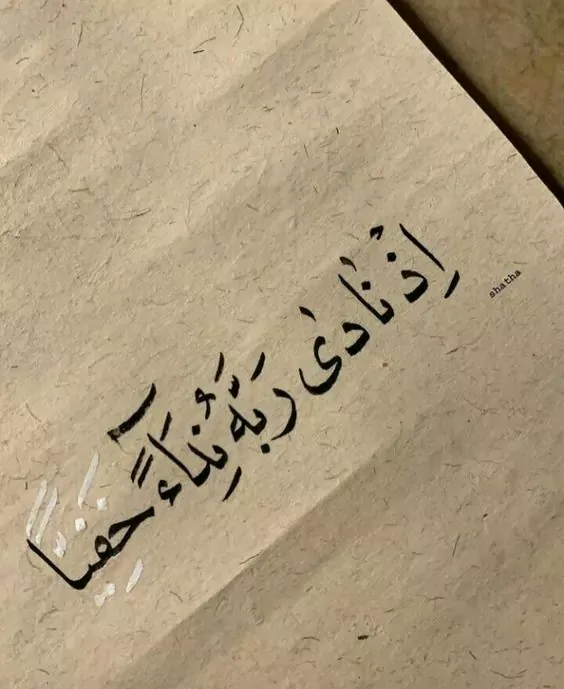 اِذْ نَادٰى رَبَّهُ نِدَآءً خَفِيًّا
shatha